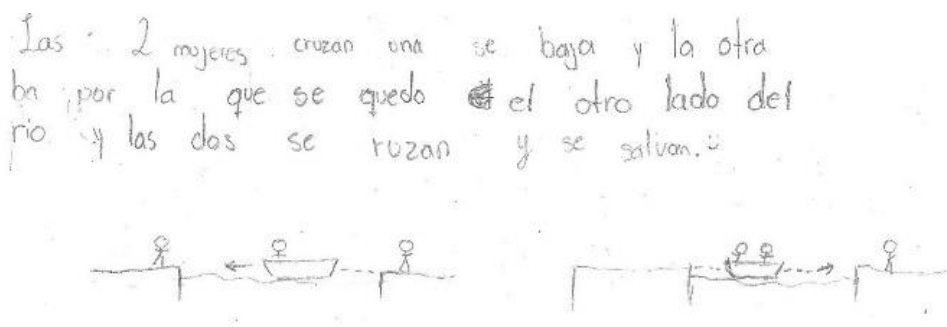 Las 2 mujeres cruzan una se baja y la otra
ba por la que se quedo el otro lado del
rio y las dos se ruzan y se salvan.